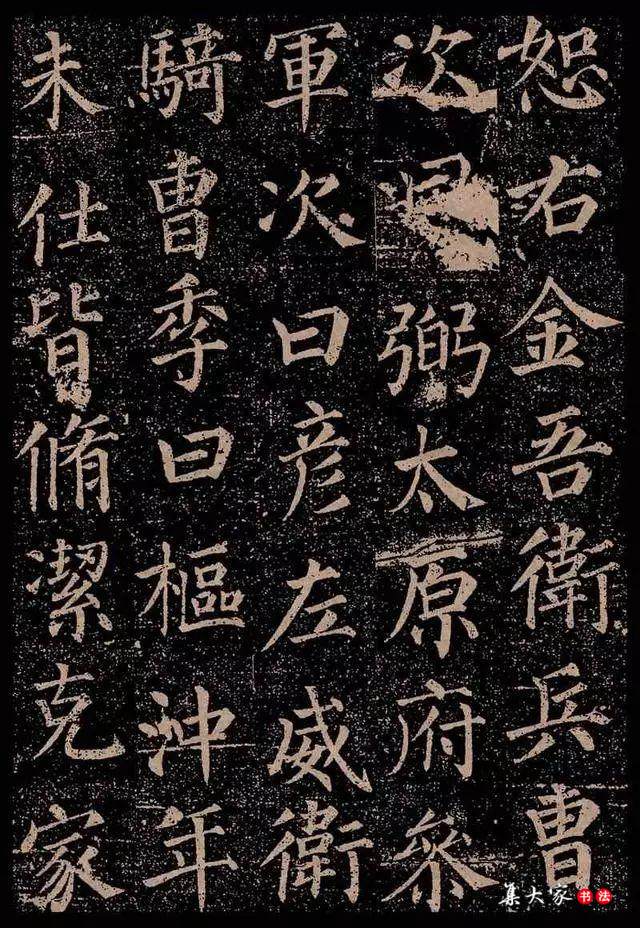 恕右金吾衛兵曹
次曰弼太原府叅
軍次曰彦左威衛
騎曹季曰樞沖年
未仕皆脩潔克家
集大家书法